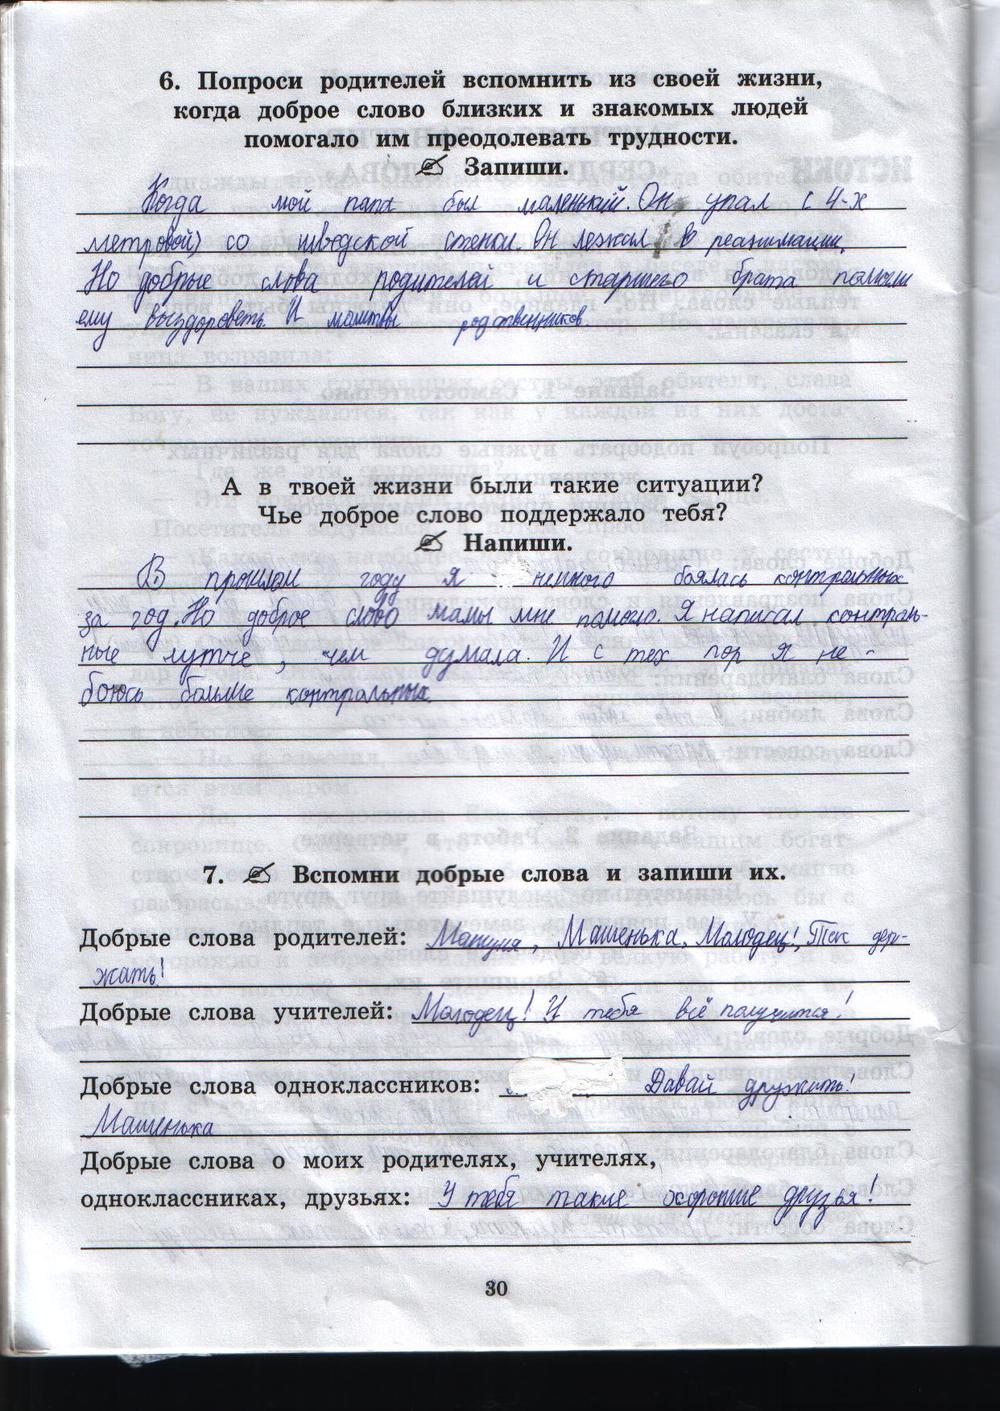 6. Попроси родителей вспомнить из своей жизни,
когда доброе слово близких и знакомых людей
помогало им преодолевать трудности.
Запиши.
Когда мой папа был маленький. Он упал с 4-х
метровой) со шведской стенки. Он лежал в реанимации.
Но добрые слова родителей и старшего брата помогли
ему выздороветь. И молитвы родственников.
А в твоей жизни были такие ситуации?
Чье доброе слово поддержало тебя?
Напиши.
В прошлом году я немного боялась контрольных
за год. Но доброе слово мамы мне помогло. Я написал контроль-
ные лутче, чем думала. И с тех пор я не-
боюсь больше контрольных.
7. Вспомни добрые слова и запиши их.
Добрые слова родителей: Машуня, Машенька, Молодец! Так дер-
жать!
Добрые слова учителей: Молодец! У тебя всё получится!
Добрые слова одноклассников: Давай дружить!
Машенька
Добрые слова о моих родителях, учителях,
одноклассниках, друзьях: У тебя такие хорошие друзья!
30